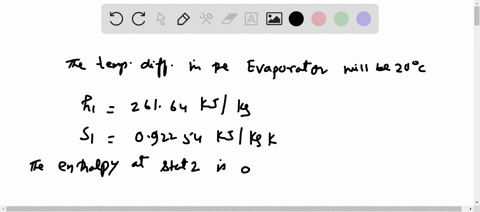 The temp. diff. in the Evaporator will be 20°c
h1 = 261.64 KJ/kg
S1 = 0.92254 KJ/kg K
The enthalpy at stat 2 is 0